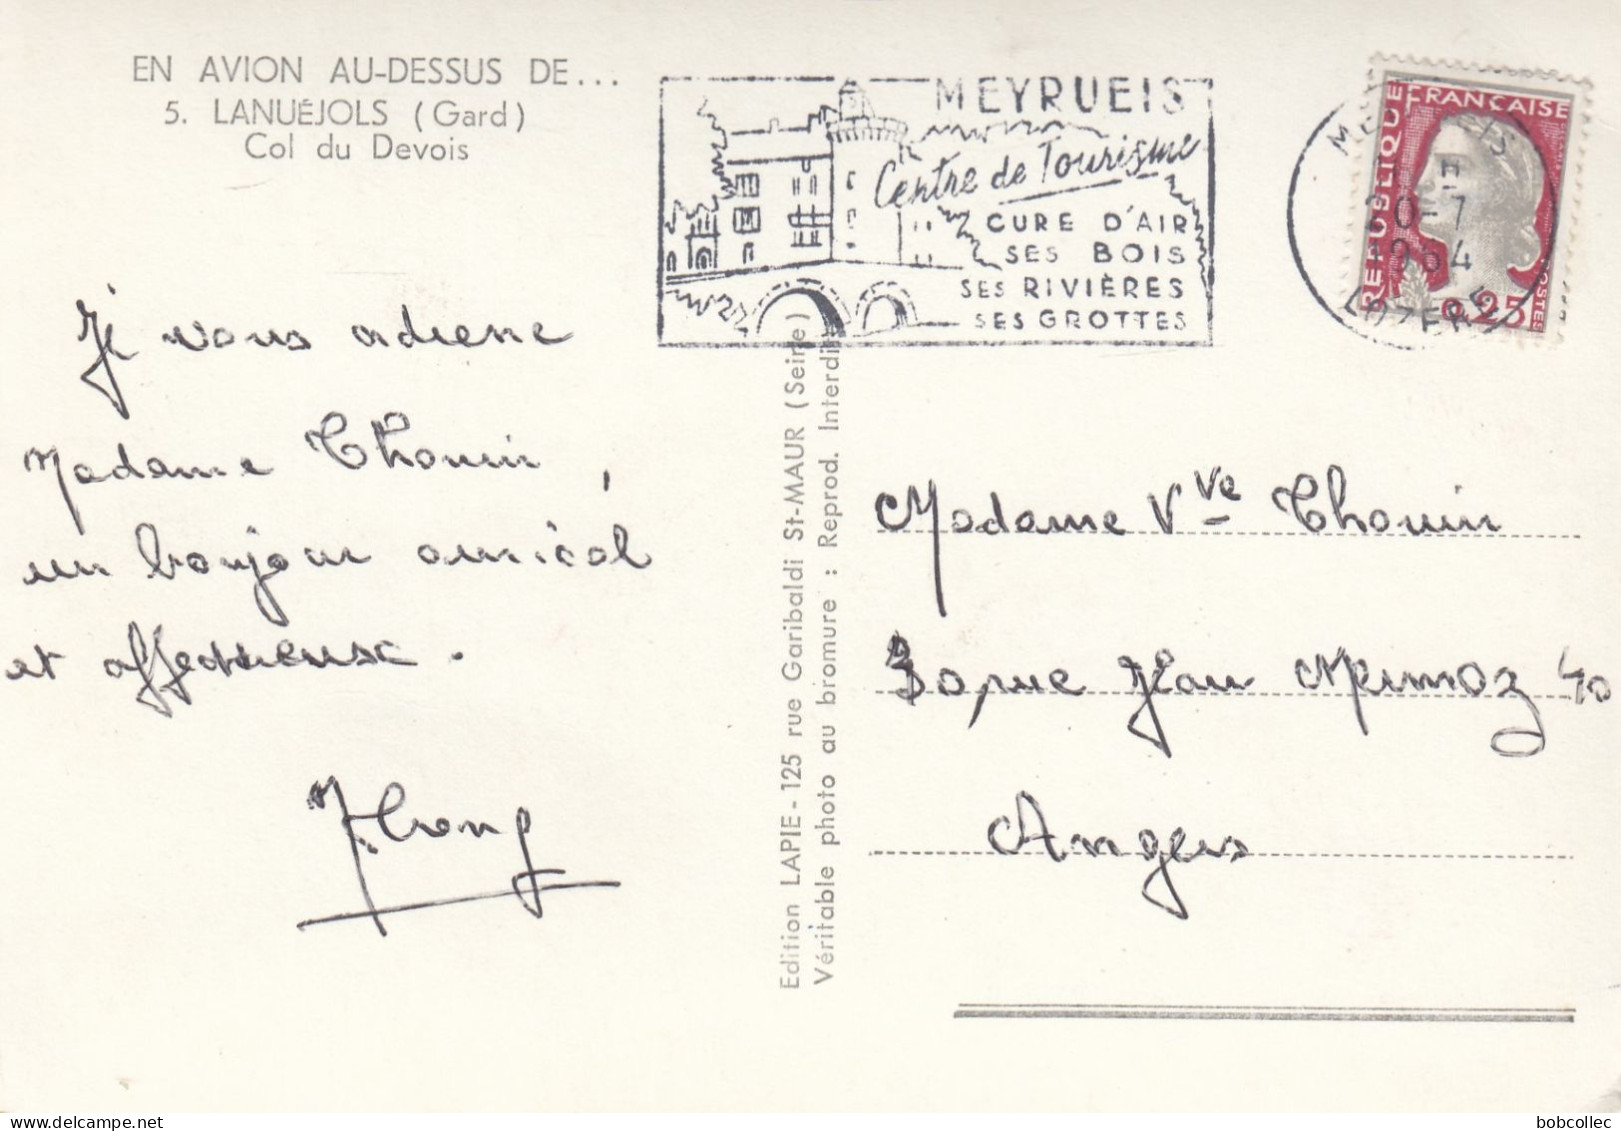 EN AVION AU-DESSUS DE...
5. LANUÉJOLS (Gard)
Col du Devois
MEYRUEIS
Centre de Tourisme
CURE D'AIR
SES BOIS
SES RIVIÈRES
SES GROTTES
20-7
1964
LOZERE
REPUBLIQUE FRANÇAISE
0,25
POSTES
Je vous adresse
Madame Thouin,
un bonjour amical
et affectueux.
Edition LAPIE - 125 rue Garibaldi St-MAUR (Seine)
Véritable photo au bromure : Reprod. Interdite
Madame Vve Thouin
30, rue Jean Mermoz 40
Angers
bobcollec